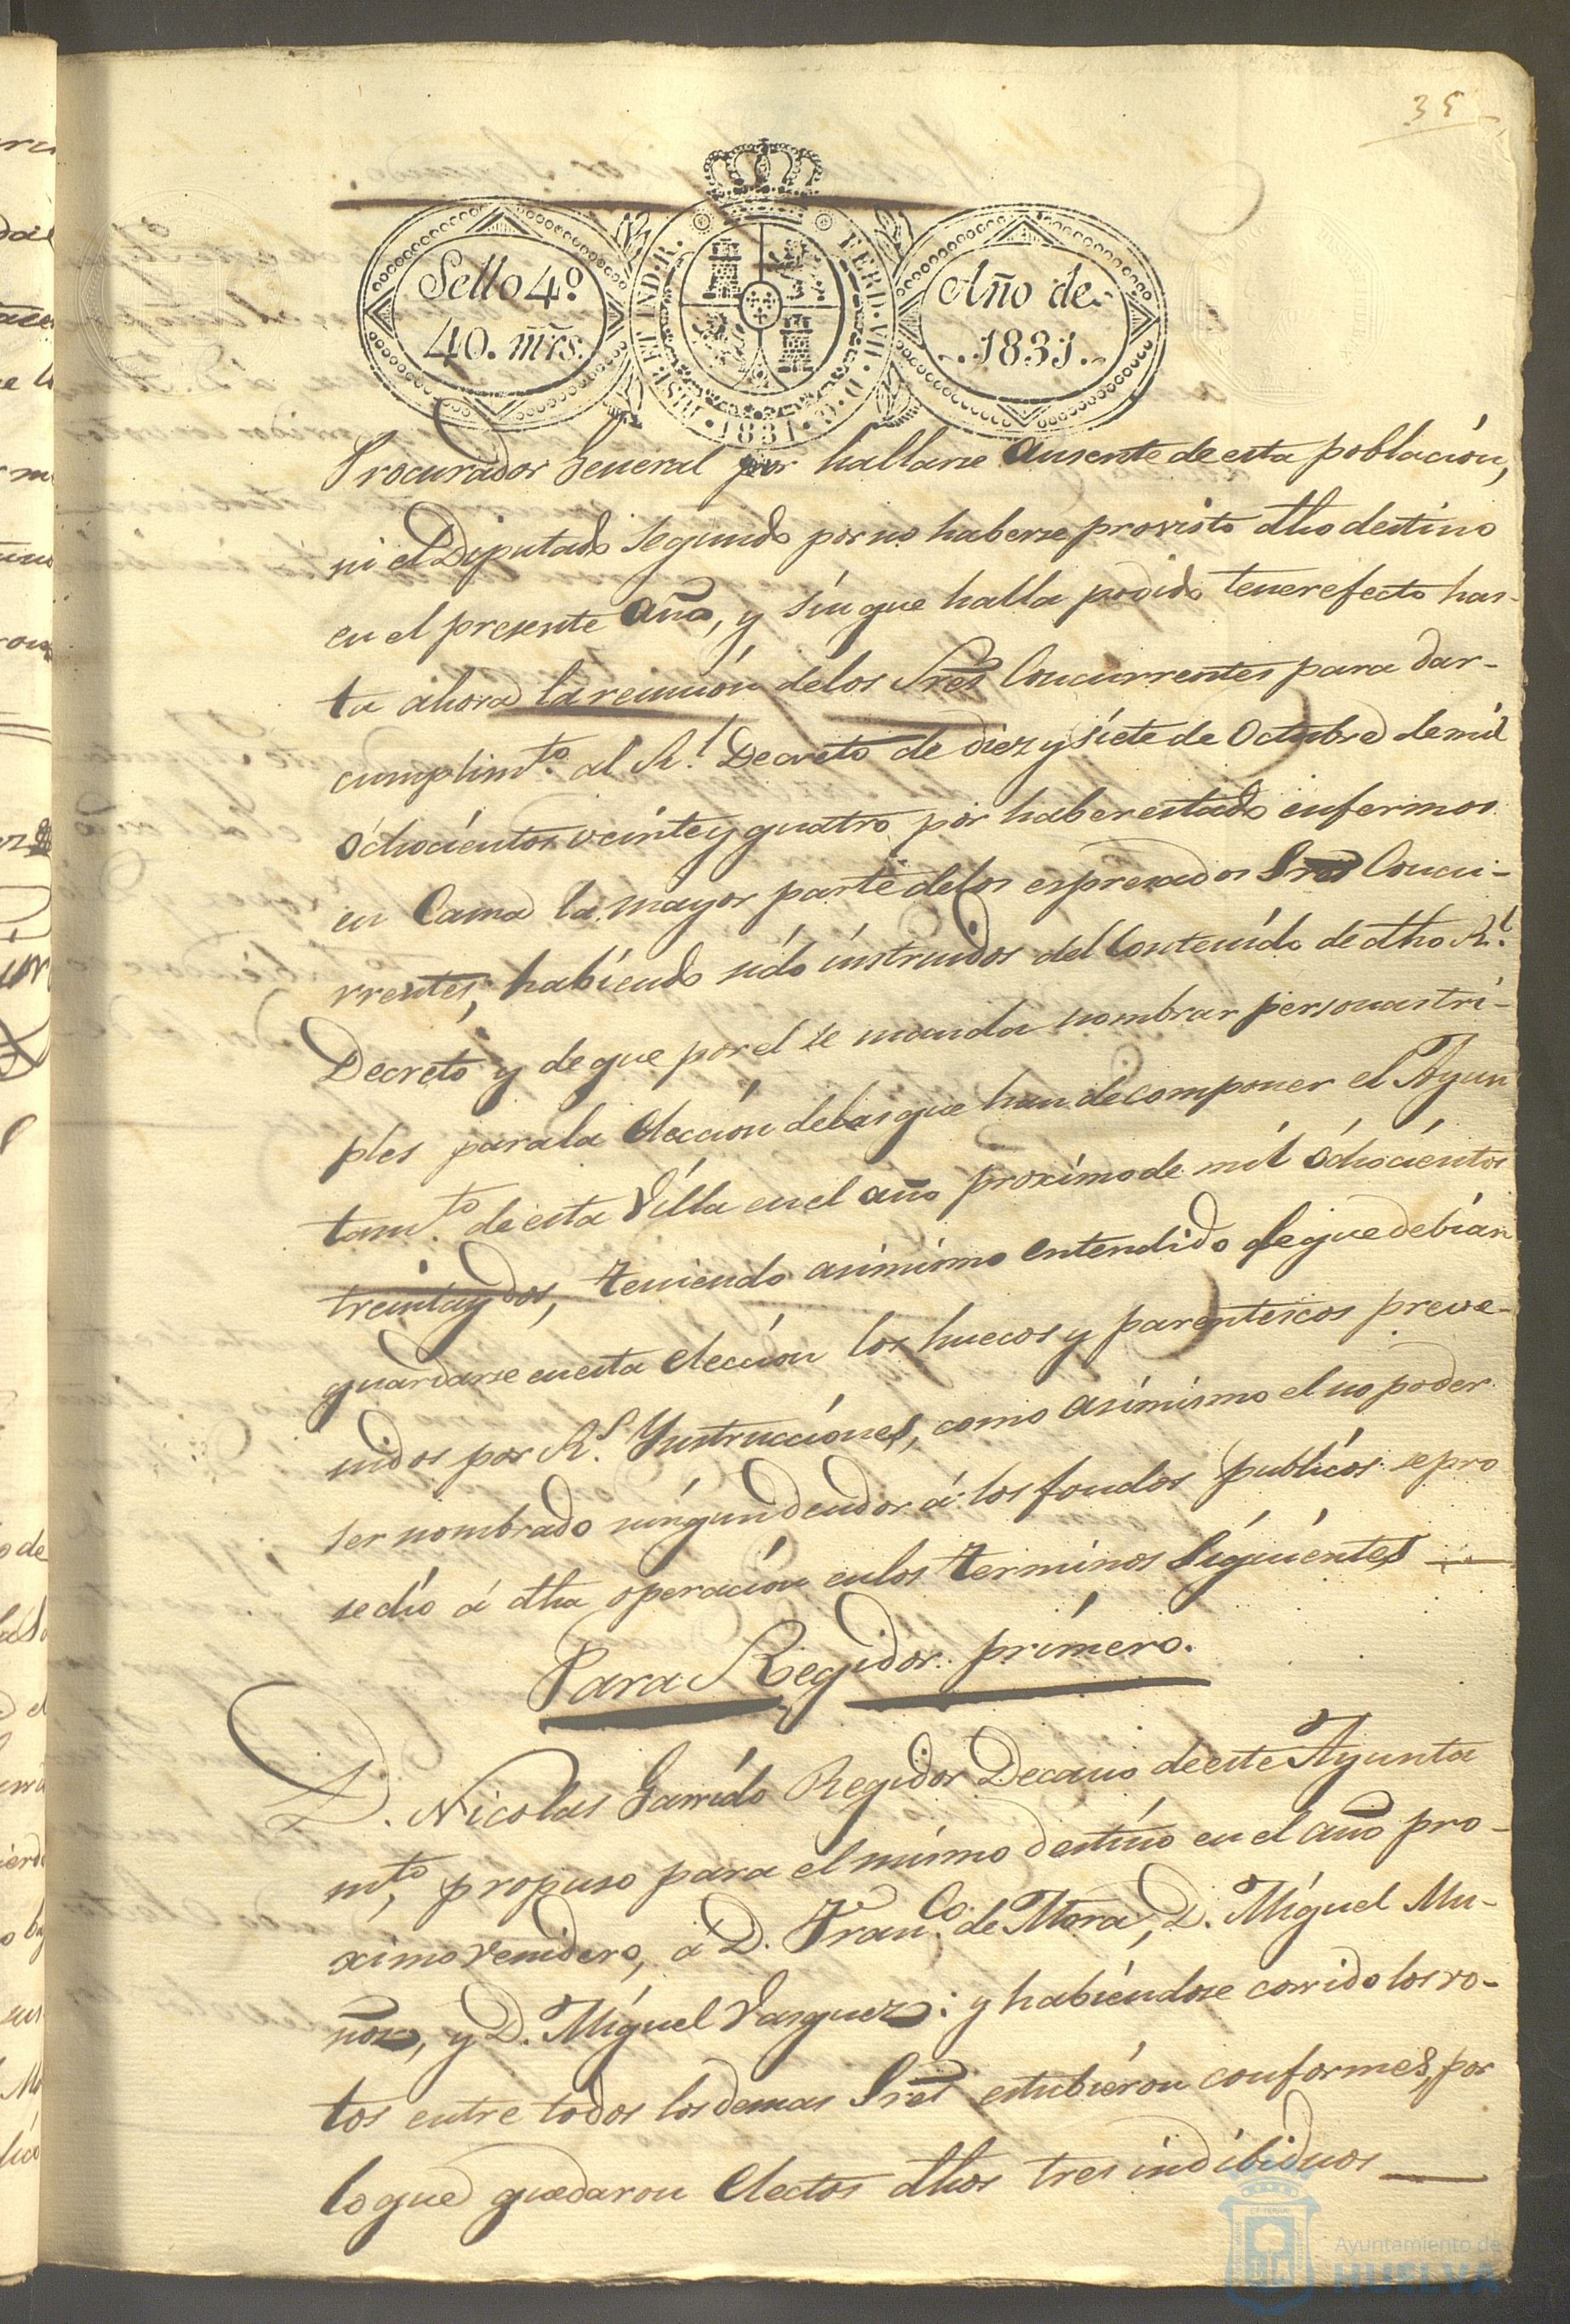 35
Sello 4º
40. mrs.
HISP. ET IND. R.
FERD. VII. D. G.
1831
Año de
1831
Procurador General por hallarse ausente de esta población,
ni el Diputado segundo por no haberse provisto dho destino
en el presente año, y sin que halla podido tener efecto has-
ta ahora la reunión de los Sres Concurrentes para dar-
cumplimto. al Rl. Decreto de diez y siete de Octubre de mil
óchocientos veinte y quatro por haber estado enfermos
en Cama la mayor parte de los espresados Sres Concu-
rrentes; habiendo sido instruidos del Contenido de dho Rl.
Decreto y de que por el se manda nombrar personas tri-
ples para la elección de las que han de componer el Ayun
tamto. de esta Villa en el año proximo de mil óchocientos
treinta y dos, teniendo asimismo entendido de que debian
guardarse en esta elección los huecos y parentescos preve-
nidos por Rs. Ynstrucciones, como asimismo el no poder
ser nombrado ningun deudor á los fondos publicos se pro
sedió á dha operación en los terminos siguientes
Para Regidor primero.
D. Nicolas Garrido Regidor Decano de este Ayunta
mto, propuso para el mismo destino en el año pro-
ximo venidero, á D. Franco. de Mora, D. Miguel Mu-
ñoz, y D. Miguel Vasquez: y habiendose corrido los vo-
tos entre todos los demas Sres estubieron conformes, por
lo que quedaron electos dhos tres indibiduos
Ayuntamiento de
HUELVA